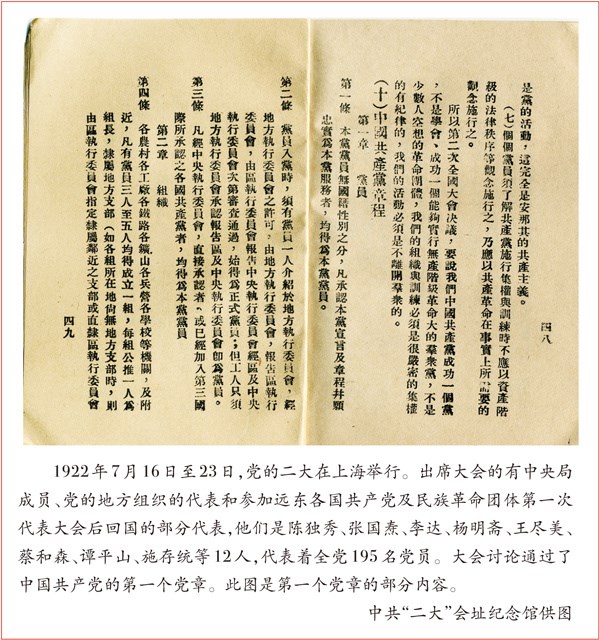 四八
是黨的活動，這完全是安那其的共產主義。
(七)個個黨員須了解共產黨施行集權與訓練時不應以資產階
級的法律秩序等觀念施行之，乃應以共產革命在事實上所需要的
觀念施行之。
所以第二次全國大會決議，要說我們中國共產黨成功一個黨
，不是學會、成功一個能夠實行無產階級革命大的羣衆黨，不是
少數人空想的革命團體，我們的組織與訓練必須是很嚴密的集權
的有紀律的，我們的活動必須是不離開羣衆的。
(十)中國共產黨章程
第一章 黨員
第一條 本黨黨員無國籍性別之分，凡承認本黨宣言及章程并願
忠實爲本黨服務者，均得爲本黨黨員。
第二條 黨員入黨時，須有黨員一人介紹於地方執行委員會，經
地方執行委員會之許可，由地方執行委員會，報告區執行
委員會，由區執行委員會報告中央執行委員會經區及中央
執行委員會次第審查通過，始得爲正式黨員；但工人只須
地方執行委員會承認報告區及中央執行委員會卽爲黨員。
第三條 凡經中央執行委員會，直接承認者、或已經加入第三國
際所承認之各國共產黨者，均得爲本黨黨員
第二章 組織
第四條 各農村各工廠各鐵路各鑛山各兵營各學校等機關，及附
近，凡有黨員三人至五人均得成立一組，每組公推一人爲
組長，隸屬地方支部（如各組所在地尙無地方支部時，則
由區執行委員會指定隸屬鄰近之支部或直隸區執行委員會
四九
1922年7月16日至23日，党的二大在上海举行。出席大会的有中央局
成员、党的地方组织的代表和参加远东各国共产党及民族革命团体第一次
代表大会后回国的部分代表，他们是陈独秀、张国焘、李达、杨明斋、王尽美、
蔡和森、谭平山、施存统等12人，代表着全党195名党员。大会讨论通过了
中国共产党的第一个党章。此图是第一个党章的部分内容。
中共“二大”会址纪念馆供图